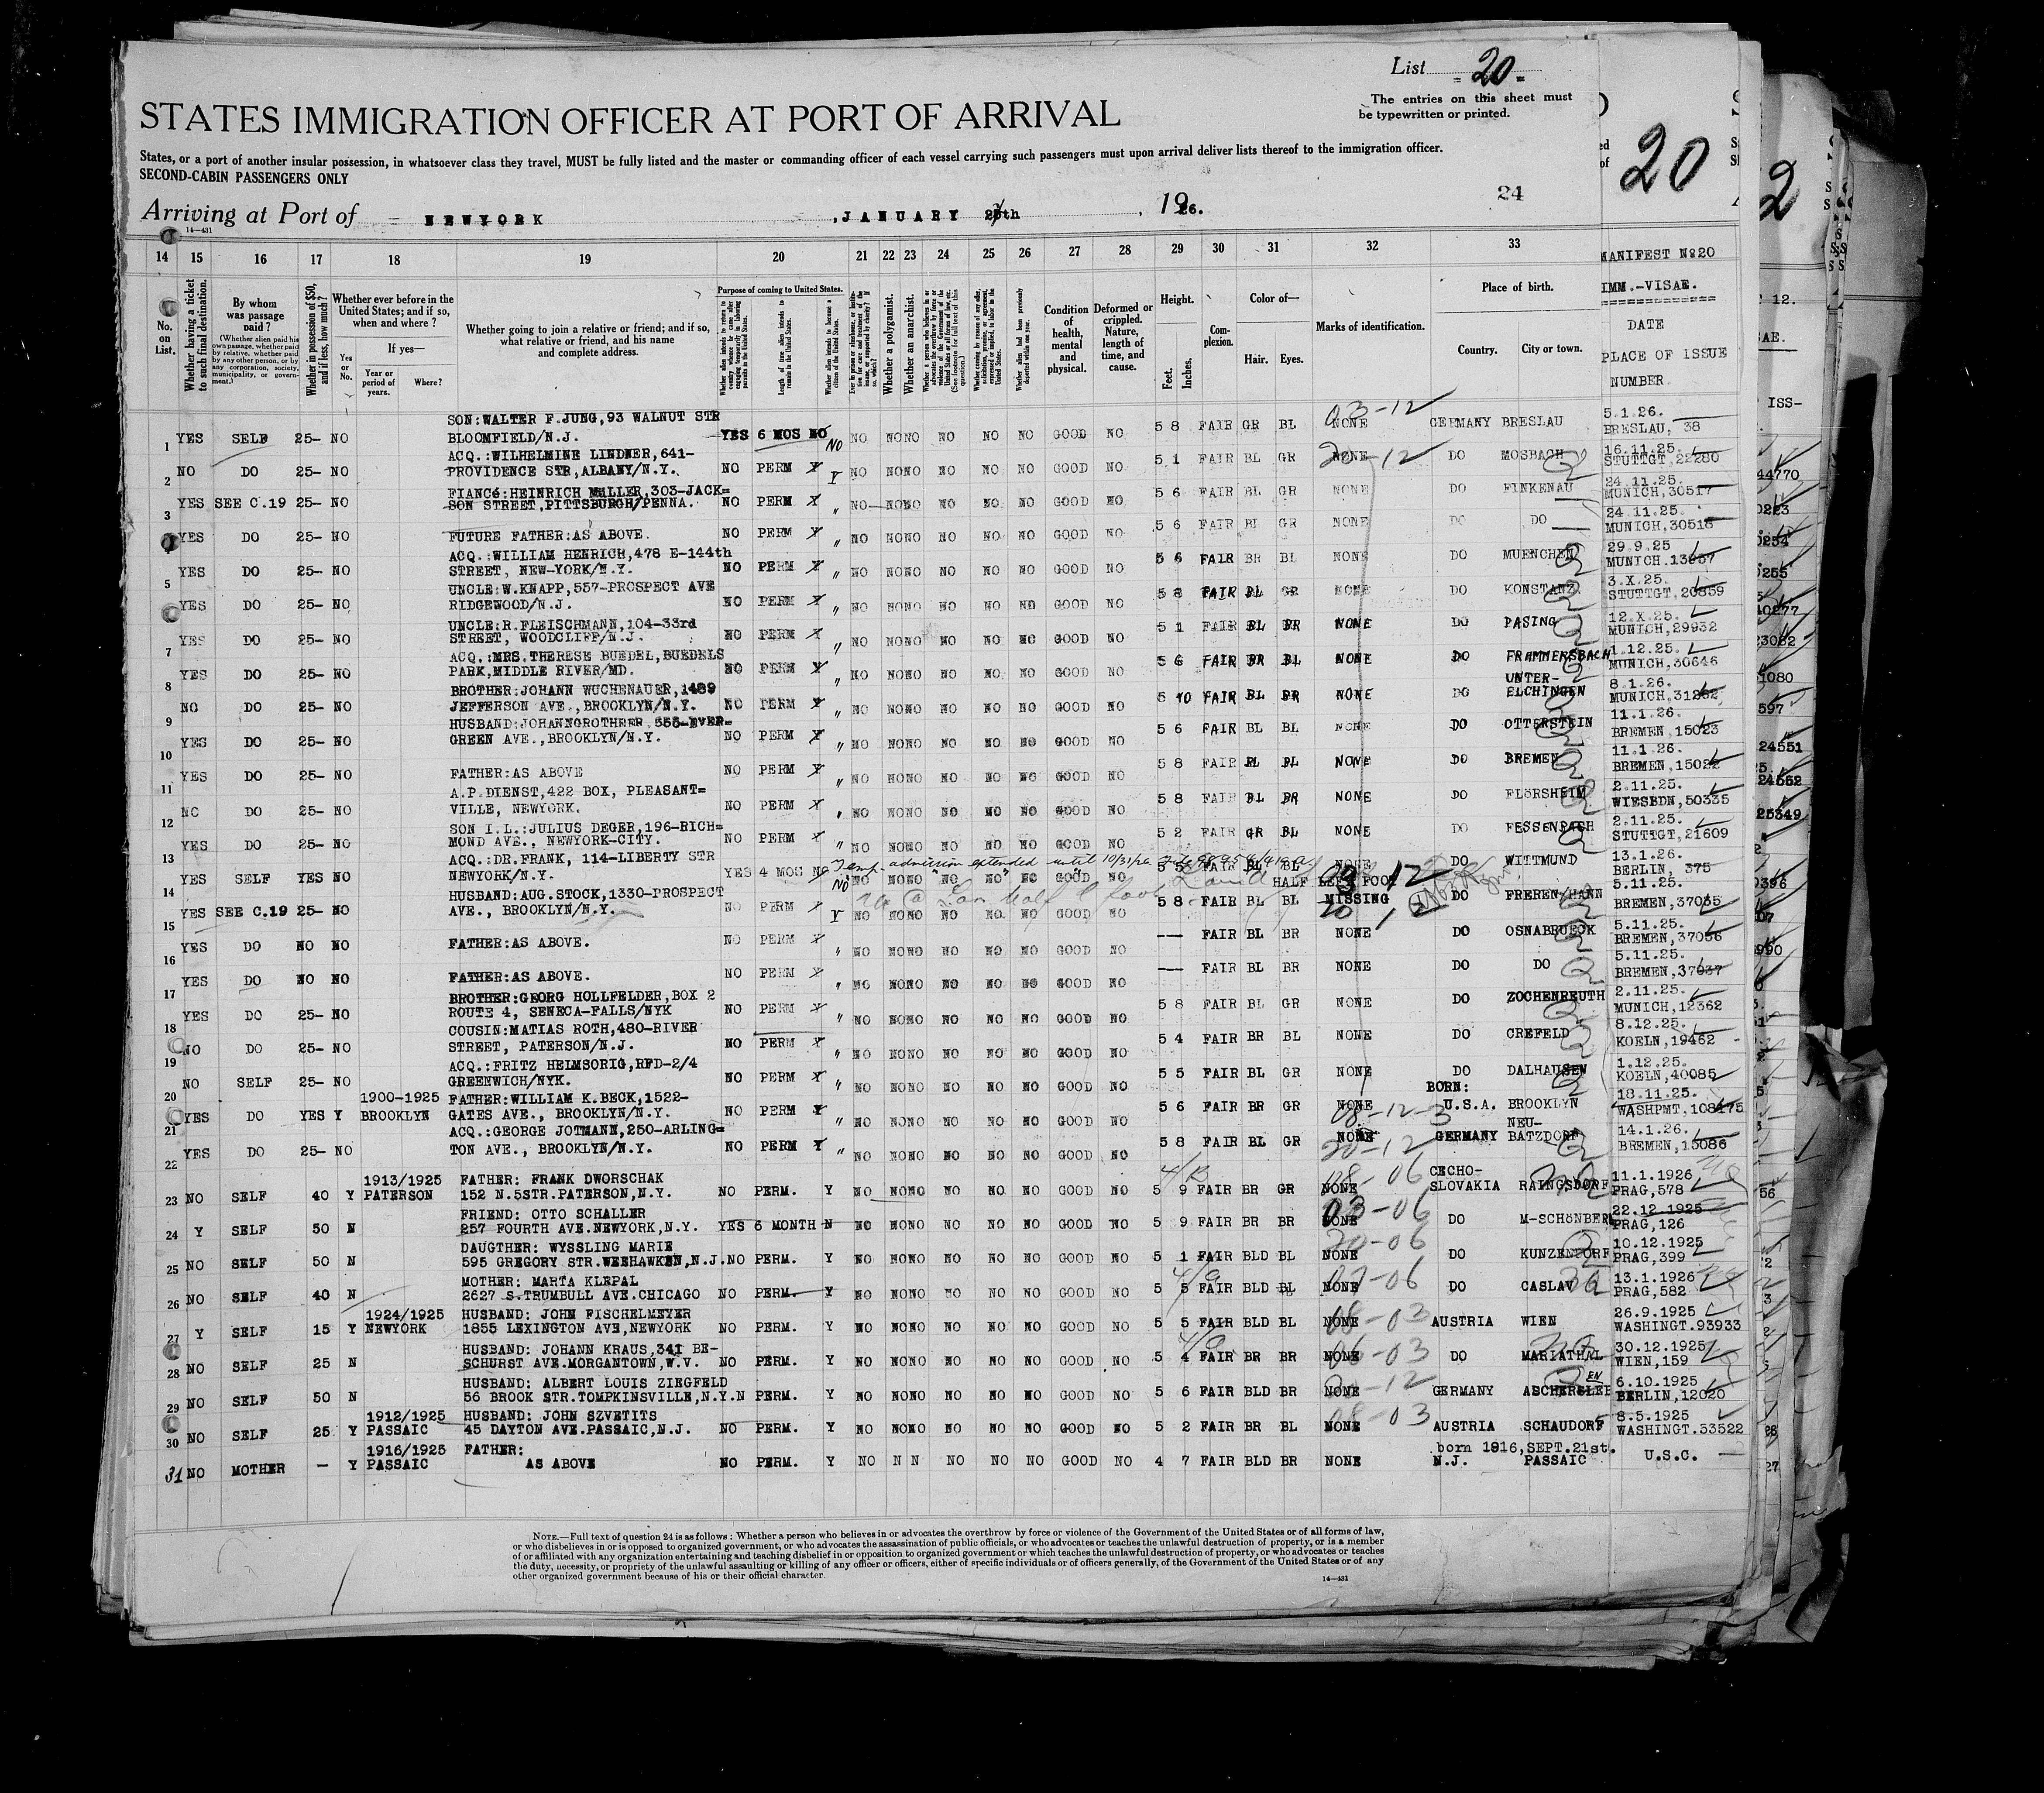 List = 20 =
The entries on this sheet must
be typewritten or printed.
STATES IMMIGRATION OFFICER AT PORT OF ARRIVAL
States, or a port of another insular possession, in whatsoever class they travel, MUST be fully listed and the master or commanding officer of each vessel carrying such passengers must upon arrival deliver lists thereof to the immigration officer.
SECOND-CABIN PASSENGERS ONLY
20
24
Arriving at Port of = NEWYORK , JANUARY th , 1926.
14—431
14 15 16 17 18 19 20 21 22 23 24 25 26 27 28 29 30 31 32 33
MANIFEST No20
IMM.-VISAE.
DATE
PLACE OF ISSUE
NUMBER
No. on List.
Whether having a ticket to such final destination.
By whom was passage paid?
(Whether alien paid his own passage, whether paid by relative, whether paid by any other person, or by any corporation, society, municipality, or government.)
Whether in possession of $50, and if less, how much?
Whether ever before in the United States; and if so, when and where?
Yes or No.
If yes—
Year or period of years.
Where?
Whether going to join a relative or friend; and if so, what relative or friend, and his name and complete address.
Purpose of coming to United States.
Length of time alien intends to remain in the United States.
Whether alien intends to become a citizen of the United States.
Whether a polygamist.
Whether an anarchist.
Condition of health, mental and physical.
Deformed or crippled. Nature, length of time, and cause.
Height.
Feet. Inches.
Complexion.
Color of—
Hair. Eyes.
Marks of identification.
Place of birth.
Country. City or town.
03-12
SON:WALTER F.JUNG,93 WALNUT STR 5.1.26.
1 YES SELF 25- NO BLOOMFIELD/N.J. YES 6 MOS NO NO NO NONO NO NO NO GOOD NO 5 8 FAIR GR BL NONE GERMANY BRESLAU BRESLAU, 38
ACQ.:WILHELMINE LINDNER,641- 20-12 16.11.25.
2 NO DO 25- NO PROVIDENCE STR,ALBANY/N.Y. NO PERM Y NO NONO NO NO NO GOOD NO 5 1 FAIR BL GR NONE DO MOSBACH STUTTGT,22280
FIANCé:HEINRICH MULLER,303-JACK= 24.11.25.
3 YES SEE C.19 25- NO SON STREET,PITTSBURGH/PENNA. NO PERM Y " NO NONO NO NO NO GOOD NO 5 6 FAIR BL GR NONE DO FINKENAU MUNICH,30517
24.11.25.
YES DO 25- NO FUTURE FATHER:AS ABOVE. NO PERM Y " NO NONO NO NO NO GOOD NO 5 6 FAIR BL GR NONE DO DO MUNICH,30518
ACQ.:WILLIAM HENRICH,478 E-144th 29.9.25
5 YES DO 25- NO STREET, NEW-YORK/N.Y. NO PERM Y " NO NONO NO NO NO GOOD NO 5 6 FAIR BR BL NONE DO MUENCHEN MUNICH.13957
UNCLE:W.KNAPP,557-PROSPECT AVE 3.X.25.
YES DO 25- NO RIDGEWOOD/N.J. NO PERM Y " NO NONO NO NO NO GOOD NO 5 8 FAIR BL GR NONE DO KONSTANZ. STUTTGT,20859
UNCLE:R.FLEISCHMANN,104-33rd 12.X.25.
7 YES DO 25- NO STREET, WOODCLIFF/N.J. NO PERM Y " NO NONO NO NO NO GOOD NO 5 1 FAIR BL BR NONE DO PASING MUNICH,29932
ACQ.:MRS.THERESE BUEDEL,BUEDELS 1.12.25.
8 YES DO 25- NO PARK,MIDDLE RIVER/MD. NO PERM Y " NO NONO NO NO NO GOOD NO 5 6 FAIR BR BL NONE DO FRAMMERSBACH MUNICH,30646
BROTHER:JOHANN WUCHENAUER,1489 UNTER- 8.1.26.
9 NO DO 25- NO JEFFERSON AVE.,BROOKLYN/N.Y. NO PERM Y " NO NONO NO NO NO GOOD NO 5 10 FAIR BL BR NONE DO ELCHINGEN MUNICH,31262
HUSBAND:JOHANNGROTHEER 555-EVER= 11.1.26.
10 YES DO 25- NO GREEN AVE.,BROOKLYN/N.Y. NO PERM Y " NO NONO NO NO NO GOOD NO 5 6 FAIR BL BL NONE DO OTTERSTEIN BREMEN,15023
11.1.26.
11 YES DO 25- NO FATHER:AS ABOVE NO PERM Y " NO NONO NO NO NO GOOD NO 5 8 FAIR BL BL NONE DO BREMEN BREMEN,15022
A.P.DIENST,422 BOX, PLEASANT= 2.11.25.
12 NO DO 25- NO VILLE, NEWYORK. NO PERM Y " NO NONO NO NO NO GOOD NO 5 8 FAIR BL BR NONE DO FLÖRSHEIM WIESBDN,50335
SON I.L.:JULIUS DEGER,196-RICH= 2.11.25.
13 YES DO 25- NO MOND AVE., NEWYORK-CITY. NO PERM Y " NO NONO NO NO NO GOOD NO 5 2 FAIR GR BL NONE DO FESSENBACH STUTTGT,21609
Temp. admission extended until 10/31/26
ACQ.:DR.FRANK, 114-LIBERTY STR 13.1.26.
14 YES SELF YES NO NEWYORK/N.Y. YES 4 MOS NO NO NO NONO NO NO NO GOOD NO 5 5 FAIR BL BL NONE DO WITTMUND BERLIN, 375
HUSBAND:AUG.STOCK,1330-PROSPECT HALF LEFT FOOT 5.11.25.
15 YES SEE C.19 25- NO AVE., BROOKLYN/N.Y. NO PERM Y NO NONO NO NO NO GOOD NO 5 8 FAIR BL BL MISSING DO FREREN/HANN BREMEN,37035
5.11.25.
16 YES DO NO NO FATHER:AS ABOVE. NO PERM Y " NO NONO NO NO NO GOOD NO --- FAIR BL BR NONE DO OSNABRUECK BREMEN,37036
5.11.25.
17 YES DO NO NO FATHER:AS ABOVE. NO PERM Y " NO NONO NO NO NO GOOD NO --- FAIR BL BR NONE DO DO BREMEN,37037
BROTHER:GEORG HOLLFELDER,BOX 2 2.11.25.
18 YES DO 25- NO ROUTE 4, SENECA-FALLS/NYK NO PERM Y " NO NONO NO NO NO GOOD NO 5 8 FAIR BL GR NONE DO ZOCHENREUTH MUNICH,12362
COUSIN:MATIAS ROTH,480-RIVER 8.12.25.
19 NO DO 25- NO STREET, PATERSON/N.J. NO PERM Y " NO NONO NO NO NO GOOD NO 5 4 FAIR BR BL NONE DO CREFELD KOELN,19462
ACQ.:FRITZ HELMSORIG,RFD-2/4 1.12.25.
20 NO SELF 25- NO GREENWICH/NYK. NO PERM Y " NO NONO NO NO NO GOOD NO 5 5 FAIR BL GR NONE DO DALHAUSEN KOELN,40085
1900-1925 FATHER:WILLIAM K.BECK,1522- BORN: 18.11.25.
21 YES DO YES Y BROOKLYN GATES AVE., BROOKLYN/N.Y. NO PERM Y " NO NONO NO NO NO GOOD NO 5 6 FAIR BR GR NONE U.S.A. BROOKLYN WASHPMT,108175
ACQ.:GEORGE JOTMANN,250-ARLING= 08-12-3 NEU- 14.1.26.
22 YES DO 25- NO TON AVE., BROOKLYN/N.Y. NO PERM Y " NO NONO NO NO NO GOOD NO 5 8 FAIR BL GR NONE GERMANY BATZDORF BREMEN,15086
20-12
1913/1925 FATHER: FRANK DWORSCHAK 08-06 CECHO- 11.1.1926
23 NO SELF 40 Y PATERSON 152 N.5STR.PATERSON,N.Y. NO PERM. Y NO NONO NO NO NO GOOD NO 5 9 FAIR BR GR NONE SLOVAKIA RAINGSDORF PRAG,578
FRIEND: OTTO SCHALLER 03-06 22.12.1925
24 Y SELF 50 N 257 FOURTH AVE.NEWYORK,N.Y. YES 6 MONTH N NO NONO NO NO NO GOOD NO 5 9 FAIR BR BR NONE DO M-SCHÖNBERG PRAG,126
DAUGTHER: WYSSLING MARIE 20-06 10.12.1925
25 NO SELF 50 N 595 GREGORY STR.WEEHAWKEN,N.J. NO PERM. Y NO NONO NO NO NO GOOD NO 5 1 FAIR BLD BL NONE DO KUNZENDORF PRAG,399
MOTHER: MARTA KLEPAL 07-06 13.1.1926
26 NO SELF 40 N 2627 S.TRUMBULL AVE.CHICAGO NO PERM. Y NO NONO NO NO NO GOOD NO 5 5 FAIR BLD BL NONE DO CASLAV PRAG,582
1924/1925 HUSBAND: JOHN FISCHELMEYER 08-03 26.9.1925
27 Y SELF 15 Y NEWYORK 1855 LEXINGTON AVE,NEWYORK NO PERM. Y NO NONO NO NO NO GOOD NO 5 5 FAIR BLD BL NONE AUSTRIA WIEN WASHINGT.93933
HUSBAND: JOHANN KRAUS,341 BE- 30.12.1925
28 NO SELF 25 N SCHURST AVE.MORGANTOWN,W.V. NO PERM. Y NO NONO NO NO NO GOOD NO 5 4 FAIR BR BR NONE DO MARIATHAL WIEN,159
HUSBAND: ALBERT LOUIS ZIEGFELD EN 6.10.1925
29 NO SELF 50 N 56 BROOK STR.TOMPKINSVILLE,N.Y. N PERM. Y NO NONO NO NO NO GOOD NO 5 6 FAIR BLD BR NONE GERMANY ASCHERSLEB BERLIN,12020
1912/1925 HUSBAND: JOHN SZVETITS 08-03 8.5.1925
30 NO SELF 25 Y PASSAIC 45 DAYTON AVE.PASSAIC,N.J. NO PERM. Y NO NONO NO NO NO GOOD NO 5 2 FAIR BR BL NONE AUSTRIA SCHAUDORF WASHINGT.53522
1916/1925 FATHER: born 1916,SEPT.21st.
31 NO MOTHER - Y PASSAIC AS ABOVE NO PERM. Y NO N N NO NO NO GOOD NO 4 7 FAIR BLD BR NONE N.J. PASSAIC U.S.C.
NOTE.—Full text of question 24 is as follows: Whether a person who believes in or advocates the overthrow by force or violence of the Government of the United States or of all forms of law,
or who disbelieves in or is opposed to organized government, or who advocates the assassination of public officials, or who advocates or teaches the unlawful destruction of property, or is a member
of or affiliated with any organization entertaining and teaching disbelief in or opposition to organized government or which teaches the unlawful destruction of property, or who advocates or teaches
the duty, necessity, or propriety of the unlawful assaulting or killing of any officer or officers, either of specific individuals or of officers generally, of the Government of the United States or of any
other organized government because of his or their official character.
14—431